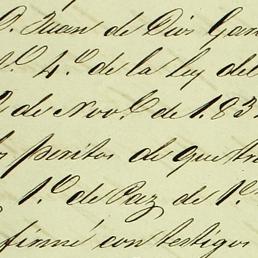 D. Juan de Dios Gar
4.º de la ley del
de Nov.e de 183
peritos de que tra
1.º de Paz de 1.
firmé con testigos